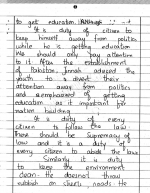 to get education.
It is duty of citizen to
keep himself away from politics
while he is getting education
We should only pay attention
to it After the establishment
of Pakistan, Jinnah advised the
youth to divert their
attention away from politics
and emphasized of getting
education as it important for
nation building
It is duty of every
citizen to follow the law
There should be supremacy of
law and it is a duty of
every citizen to obey the laws
Similarly it is duty
to keep the environment
clean. He doesnot throw
rubbish on needs He